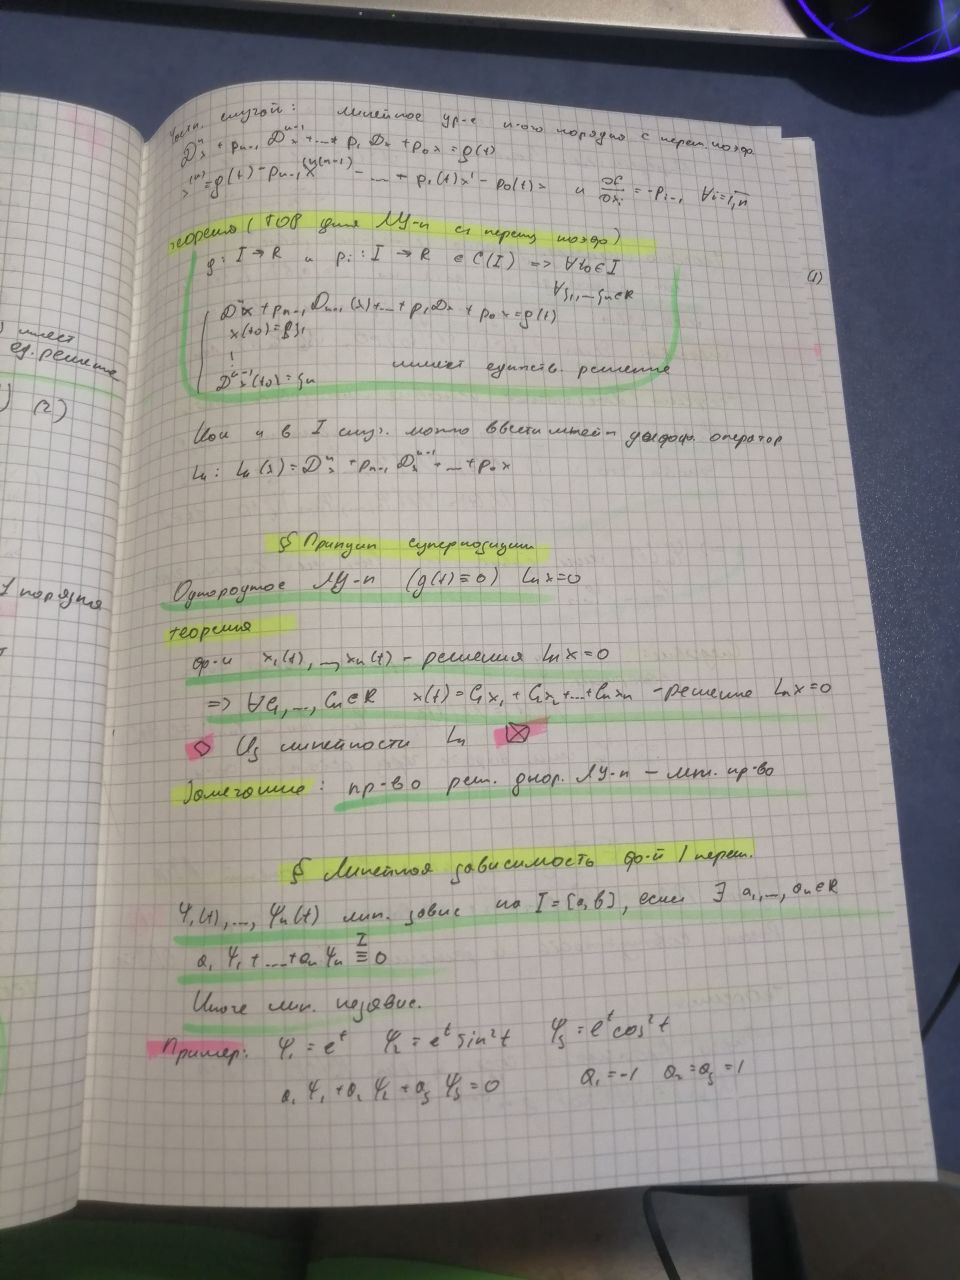 имеет
ед. решение
(2)
1 порядка
част. случай: линейное ур-е n-ого порядка с перем. коэф.
Dⁿx + pₙ₋₁ Dⁿ⁻¹x + ... + p₁ Dx + p₀x = g(t)
x⁽ⁿ⁾ = g(t) - pₙ₋₁ x⁽ⁿ⁻¹⁾ - ... + p₁(t)x' - p₀(t)x и = -pᵢ₋₁ ∀i=1,n
теорема (ТОР для ЛУ-n с перем коэф)
g: I → R и pᵢ: I → R ∈ C(I) => ∀t₀∈I
(1)
∀ξ₁,...ξn∈R
Dⁿx + pₙ₋₁ Dₙ₋₁(x) + ... + p₁Dx + p₀x = g(t)
x(t₀) = ξ₁
Dⁿ⁻¹x(t₀) = ξn имеет единств. решение
Как и в I случ. можно ввести оператор
Lₙ: Lₙ(x) = Dⁿx + pₙ₋₁ Dⁿ⁻¹ + ... + p₀x
§ Принцип суперпозиции
Однородное ЛУ-n (g(t) ≡ 0) Lₙx=0
теорема
ф-и x₁(t), ..., xn(t) - решения Lₙx=0
=> ∀C₁, ..., Cₙ∈R x(t) = C₁x₁ + C₂x₂ + ... + Cₙxn - решение Lₙx=0
◇ Из линейности Lₙ ☒
Замечание: пр-во реш. днор. ЛУ-n - лин. пр-во
§ Линейная зависимость ф-й 1 перем.
Ψ₁(t), ..., Ψn(t) лин. завис на I=[a,b], если ∃ a₁, ..., an∈R
a₁Ψ₁ + ... + anΨn ≡ 0
I
Иначе лин. независ.
Пример: Ψ₁ = eᵗ Ψ₂ = eᵗ sin²t Ψ₃ = eᵗ cos²t
a₁Ψ₁ + a₂Ψ₂ + a₃Ψ₃ = 0 a₁ = -1 a₂ = a₃ = 1